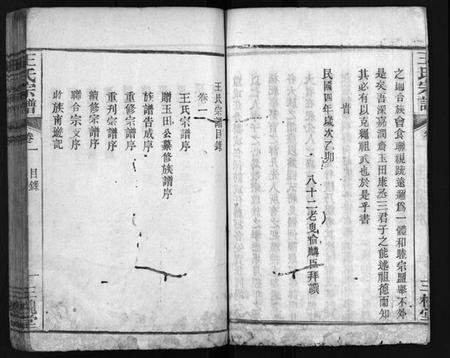 之期合族會食聯視疏遠邇為一體和睦宗盟舉不外
是矣吾深嘉潤齋玉田康丞三君子之能述祖德而知
其必有以克繩祖武也於是乎書
旹
民國四年歲次乙卯
八十二老叟 麟臣拜譔
三槐堂
王氏宗譜
王氏宗譜目錄
卷一
王氏宗譜序
贈玉田公纂修族譜序
族譜告成序
重修宗譜序
重刋宗譜序
續修宗譜序
聯合宗支序
族南遊記
王氏宗譜
卷一
目錄
三槐堂